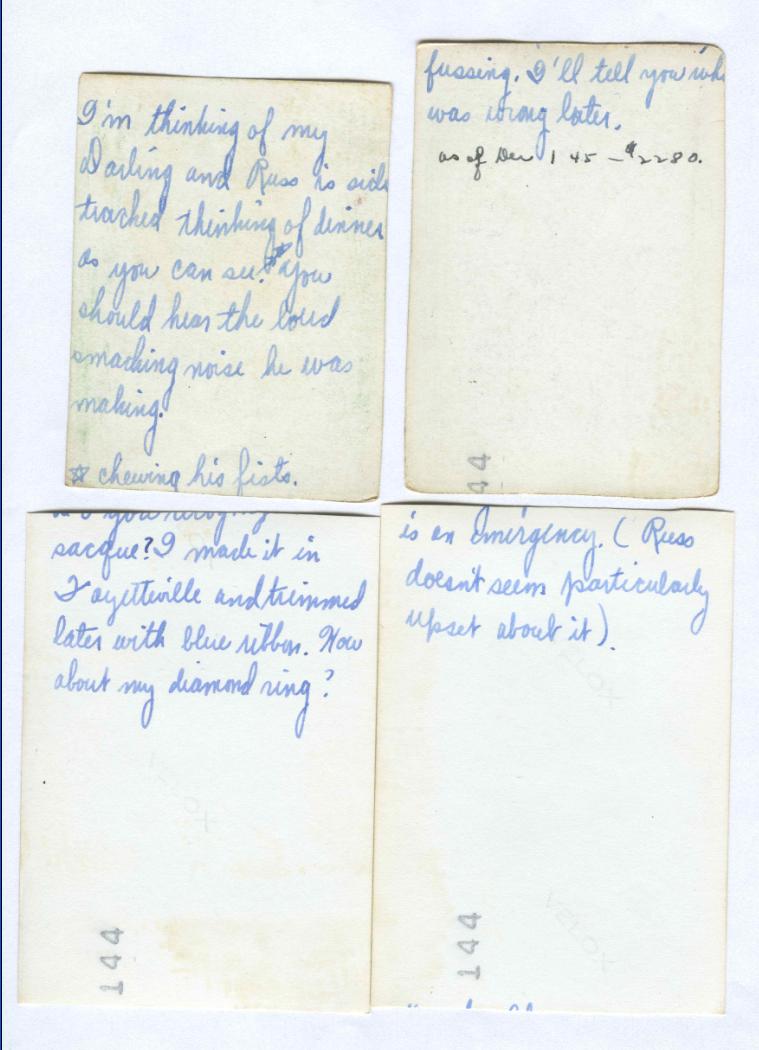 I'm thinking of my
Darling and Russ is side
tracked thinking of dinner
as you can see.** You
should hear the loud
smacking noise he was
making.
* chewing his fists.
fussing. I'll tell you wh
was wrong later.
as of Dec 1 45 - $2280.
144
you recogni
sacque? I made it in
Fayetteville and trimmed
later with blue ribbon. How
about my diamond ring?
VELOX
144
is an emergency. (Russ
doesn't seem particularly
upset about it).
VELOX
VELOX
144